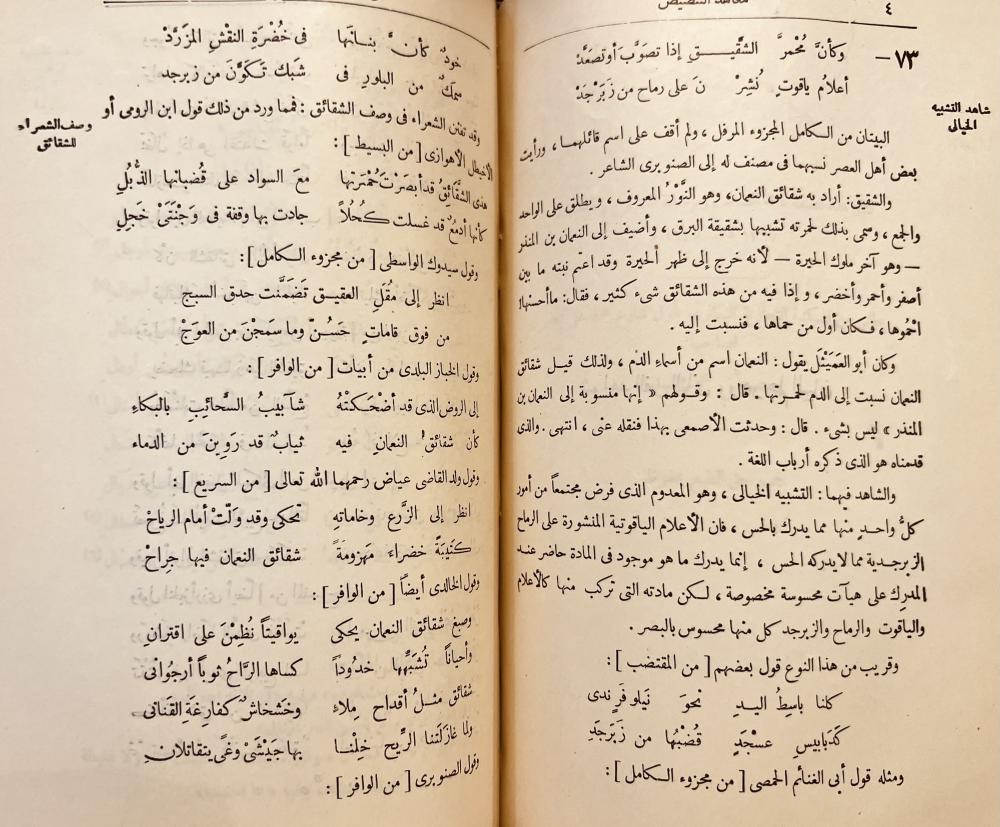 ٤
معاهد التنصيص
٧٣ — وكأنَّ مُحْمرَّ الشَّقيـــقِ إذا تصوَّبَ أو تصعَّدْ
أعلامُ ياقوتٍ نُشِرْ نَ على رماحٍ من زَبَرْجَدْ
شاهد التشبيه
الخيالى
البيتان من الكامل المجزوء المرفل ، ولم أقف على اسم قائلهما ، ورأيت
بعض أهل العصر نسبهما فى مصنف له إلى الصنوبرى الشاعر .
والشقيق: أراد به شقائق النعمان، وهو النَّوْرُ المعروف ، ويطلق على الواحد
والجمع ، وسمى بذلك لحمرته تشبيها بشقيقة البرق ، وأضيف إلى النعمان بن المنذر
— وهو آخر ملوك الحيرة — لأنه خرج إلى ظهر الحيرة وقد اعتم نبته ما بين
أصفر وأحمر وأخضر ، وإذا فيه من هذه الشقائق شىء كثير ، فقال: ما أحسنها!
احْمُوها ، فكان أول من حماها ، فنسبت إليه .
وكان أبو العَمَيْثَل يقول : النعمان اسم من أسماء الدم ، ولذلك قيل شقائق
النعمان نسبت إلى الدم لحمرتها . قال : وقولهم « إنها منسوبة إلى النعمان بن
المنذر » ليس بشىء . قال : وحدثت الأصمعى بهذا فنقله عنى ، انتهى . والذى
قدمناه هو الذى ذكره أرباب اللغة .
والشاهد فيهما : التشبيه الخيالى ، وهو المعدوم الذى فرض مجتمعاً من أمور
كلُّ واحدٍ منها مما يدرك بالحس ، فان الأعلام الياقوتية المنشورة على الرماح
الزبرجدية مما لا يدركه الحس ، إنما يدرك ما هو موجود فى المادة حاضر عند
المدرِك على هيآت محسوسة مخصوصة ، لكن مادته التى تركب منها كالأعلام
والياقوت والرماح والزبرجد كل منها محسوس بالبصر .
وقريب من هذا النوع قول بعضهم [ من المقتضب ] :
كلنا باسِطُ اليـدِ نحوَ نَيلوفَرٍ ندى
كَدَبابيسِ عسْجَدٍ قُضْبُها من زَبَرْجَدِ
ومثله قول أبى الغنائم الحمصى [ من مجزوء الكامل ] :
خودٌ كأنَّ بنانها فى خُضْرةِ النقشِ المزَرَّدْ
سمكٌ من البلورِ فى شَبَك تكوَّنَ من زبرجد
وصف الشعراء
للشقائق
وقد تفنن الشعراء فى وصف الشقائق : فمما ورد من ذلك قول ابن الرومى أو
الأخيطل الأهوازى [ من البسيط ] :
هذى الشَّقائِقُ قد أبصَرْتَ حُمْرَتها معَ السوادِ على قُضبانها الذُّبُلِ
كأنها أدمعٌ قد غسلت كُحُلاً جادت بها وقفة فى وَجْنَتَىْ خَجِلِ
وقول سيدوك الواسطى [ من مجزوء الكامل ] :
انظر إلى مُقَلِ العقيق تضَمَّنت حدق السبج
من فوق قاماتٍ حَسُنَّ وما سَمجْنَ من العوَجْ
وقول الخباز البلدى من أبيات [ من الوافر ] :
إلى الروض الذى قد أضْحَكتْهُ شآبيبُ السَّحائِبِ بالبكاءِ
كأن شقائق النعمانِ فيه ثيابٌ قد رَوِينَ من الدماء
وقول ولد القاضى عياض رحمهما الله تعالى [ من السريع ] :
انظر إلى الزَّرع وخاماتهِ تحكى وقد وَلّتْ أمام الرياحْ
كَتيبَةً خضراء مَهزومَةً شقائق النعمان فيها جِراحْ
وقول الخالدى أيضاً [ من الوافر ] :
وصبغ شقائق النعمان يحكى يواقيتاً نُظِمْنَ على اقترانِ
وأحياناً تُشبِّهها خدُوداً كساها الرَّاحُ ثوباً أرجُوانى
شقائق مثلُ أقداحٍ مِلاءٍ وخَشخاشٌ كفارِغَةِ القَنانى
ولما غازَلَتنا الريح خِلْنا بها جَيْشَىْ وغًى يتقاتلان
وقول الصنوبرى [ من الوافر ] :